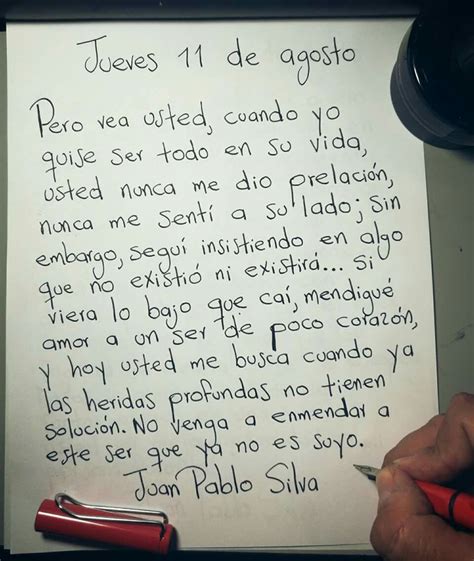 Jueves 11 de agosto
Pero vea usted, cuando yo
quise ser todo en su vida,
usted nunca me dio prelación,
nunca me sentí a su lado; sin
embargo, seguí insistiendo en algo
que no existió ni existirá... si
viera lo bajo que caí, mendigué
amor a un ser de poco corazón,
y hoy usted me busca cuando ya
las heridas profundas no tienen
solución. No venga a enmendar a
este ser que ya no es suyo.
Juan Pablo Silva